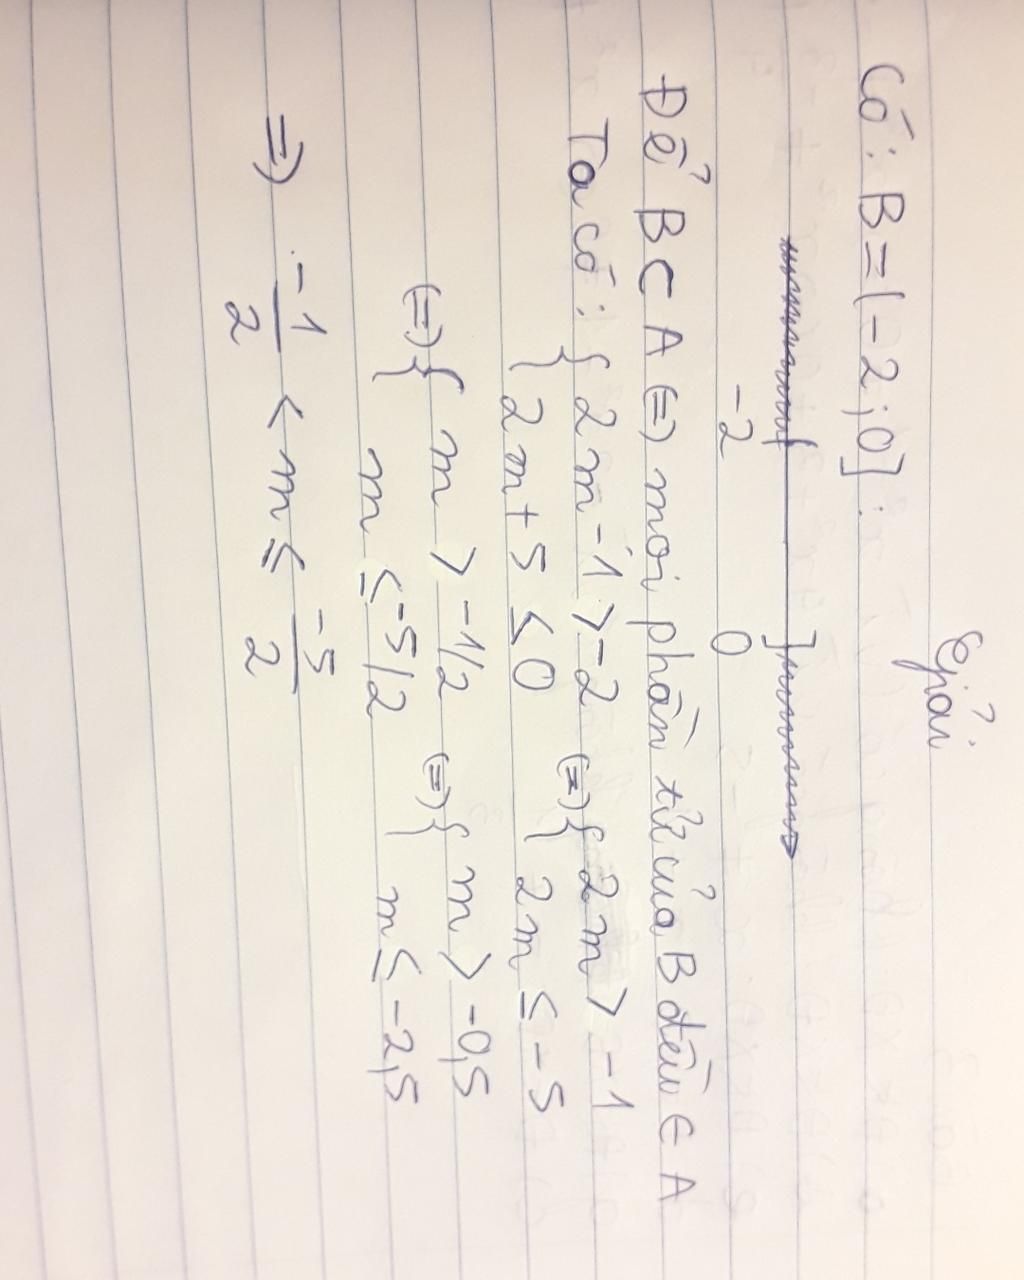 Giải
Có: B = (-2; 0]:
-2 0
Để B ⊂ A (=) mọi phần tử của B đều ∈ A
Ta có: { 2m - 1 > -2 (=) { 2m > -1
{ 2m + 5 ≤ 0 { 2m ≤ -5
(=) { m > -1/2 (=) { m > -0,5
{ m ≤ -5/2 { m ≤ -2,5
=) -1/2 < m ≤ -5/2